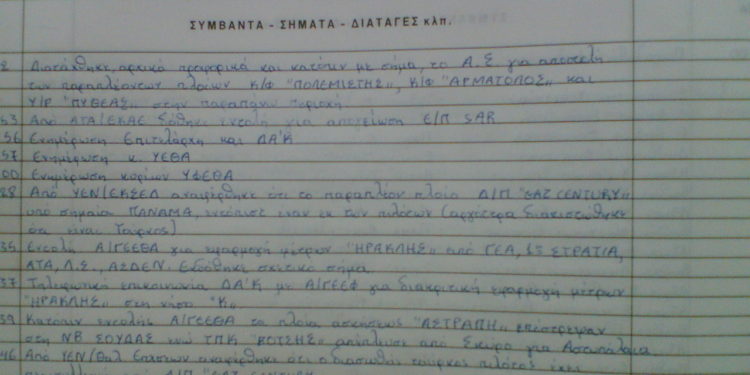 ΣΥΜΒΑΝΤΑ - ΣΗΜΑΤΑ - ΔΙΑΤΑΓΕΣ κλπ.
2 Διατάχθηκε, αρχικά προφορικά και κατόπιν με σήμα, το Α.Σ για αποστολή
των παραπλεόντων πλοίων Κ/Φ "ΠΟΛΕΜΙΣΤΗΣ", Κ/Φ "ΑΡΜΑΤΟΛΟΣ" και
Υ/Γ "ΠΥΘΕΑΣ" στην παραπάνω περιοχή
53 Από ΑΤΑ/ΕΚΑΕ δόθηκε εντολή για απογείωση Ε/Π SAR
56 Ενημέρωση Επιτελάρχη και ΔΑ'Κ
57 Ενημέρωση κ. ΥΕΘΑ
00 Ενημέρωση κυρίων ΥΦΕΘΑ
28 Από ΥΕΝ/ΕΚΣΕΔ αναφέρθηκε ότι το παραπλέον πλοίο Δ/Π "GAZ CENTURY"
υπό σημαία ΠΑΝΑΜΑ, εντόπισε έναν εκ των πιλότων (αργότερα διαπιστώθηκε
ότι είναι Τούρκος)
35 Εντολή Α/ΓΕΕΘΑ για εφαρμογή μέτρων "ΗΡΑΚΛΗΣ" από ΓΕΑ, 1η ΣΤΡΑΤΙΑ,
ΑΤΑ, Λ.Σ., ΑΣΔΕΝ. Εκδόθηκε σχετικό σήμα
37 Τηλεφωνική επικοινωνία ΔΑ'Κ με Α/ΓΕΕΦ για διακριτική εφαρμογή μέτρων
"ΗΡΑΚΛΗΣ" στη νήσο "Κ"
39 Κατόπιν εντολής Α/ΓΕΕΘΑ τα πλοία ασκήσεως "ΑΣΤΡΑΠΗ" επέστρεψαν
στη ΝΒ ΣΟΥΔΑΣ ενώ ΤΠΚ "ΒΟΤΣΗΣ" απέπλευσε από Σκύρο για Αστυπάλαια
46 Από ΥΕΝ/Θαλ Επίσεων αναφέρθηκε ότι ο διασωθείς τούρκος πιλότος έχει
Δ/Π "GAZ CENTURY